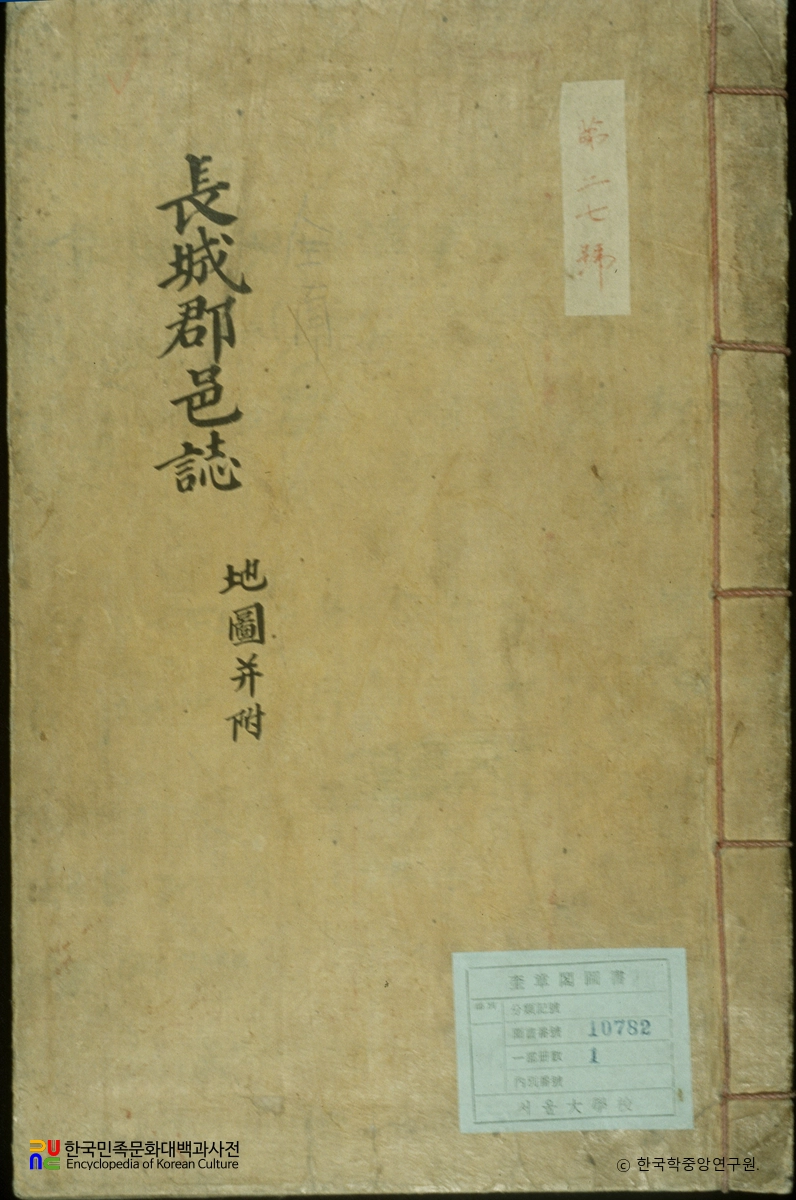 第二七號
長城郡邑誌
地圖并附
奎章閣圖書
分類記號
圖書番號 10782
一部册數 1
內氾番號
서울大學校
한국민족문화대백과사전
Encyclopedia of Korean Culture
© 한국학중앙연구원.